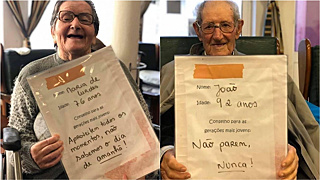 Maria de
Lurdes
Idade: 76 anos
Conselho para as
gerações mais jovens:
Aproveitem todos os
momentos, não
sabemos o dia
de amanhã!
Nome: João
Idade: 92 anos
Conselho para as
gerações mais jovens:
Não parem,
Nunca!